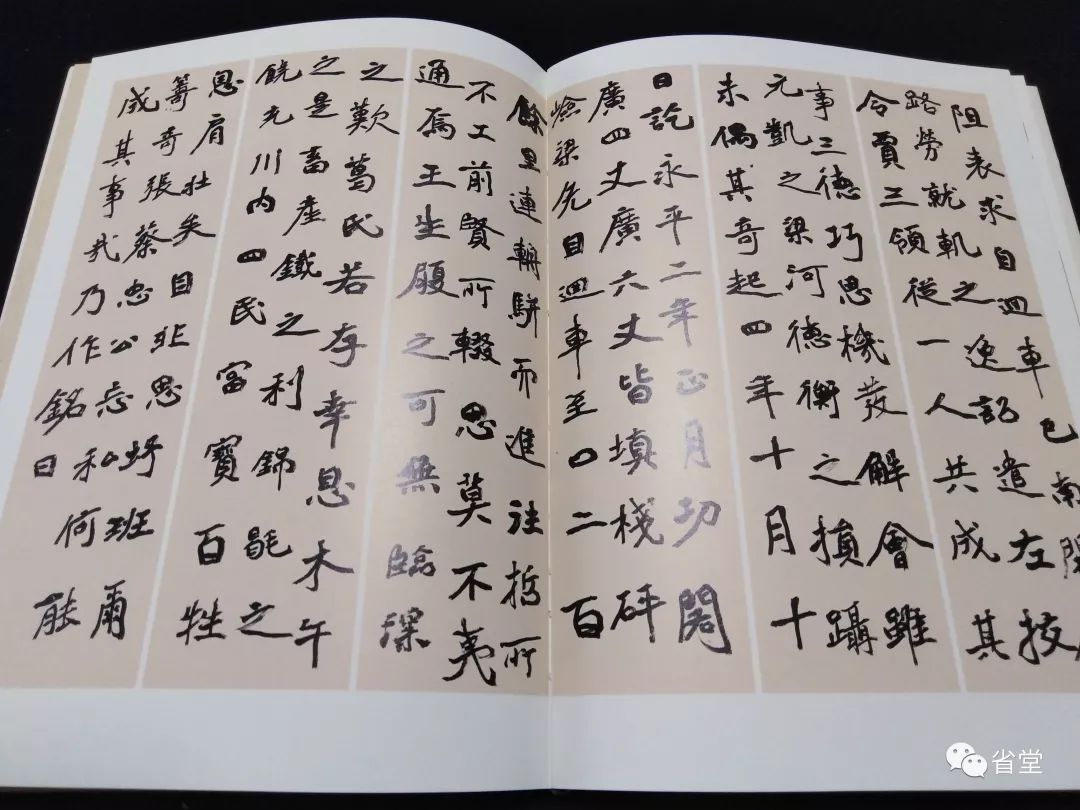 阻表求自迴車已南
路勞就軌之逸詔遣左技
令賈三領從一人共成其
事三德巧思機發解會雖
元凱之梁河德衡之損躡
未偶其奇起四年十月十
日訖永平二年正月功閣
廣四丈廣六丈皆填棧砰
險梁危自迴車至口二百
餘里連輈駢而進往哲所
不工前賢所輟思莫不夷
通焉王生履之可無臨深
之歎葛氏若存幸息木午
之是畜產鐵之利錦毼之
饒充川内四民富寶百姓
息肩壯矣自非思埒班爾
籌奇張蔡忠公忘私何能
成其事哉乃作銘曰
省堂